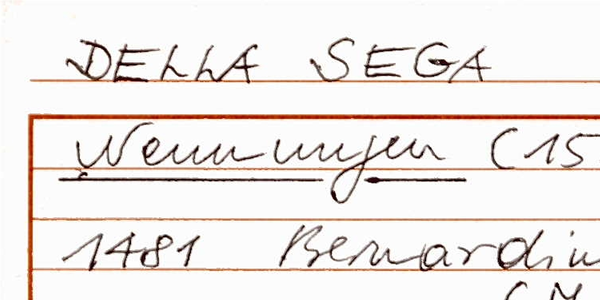 DELLA SEGA
Nennungen (15
1481 Bernardin
(